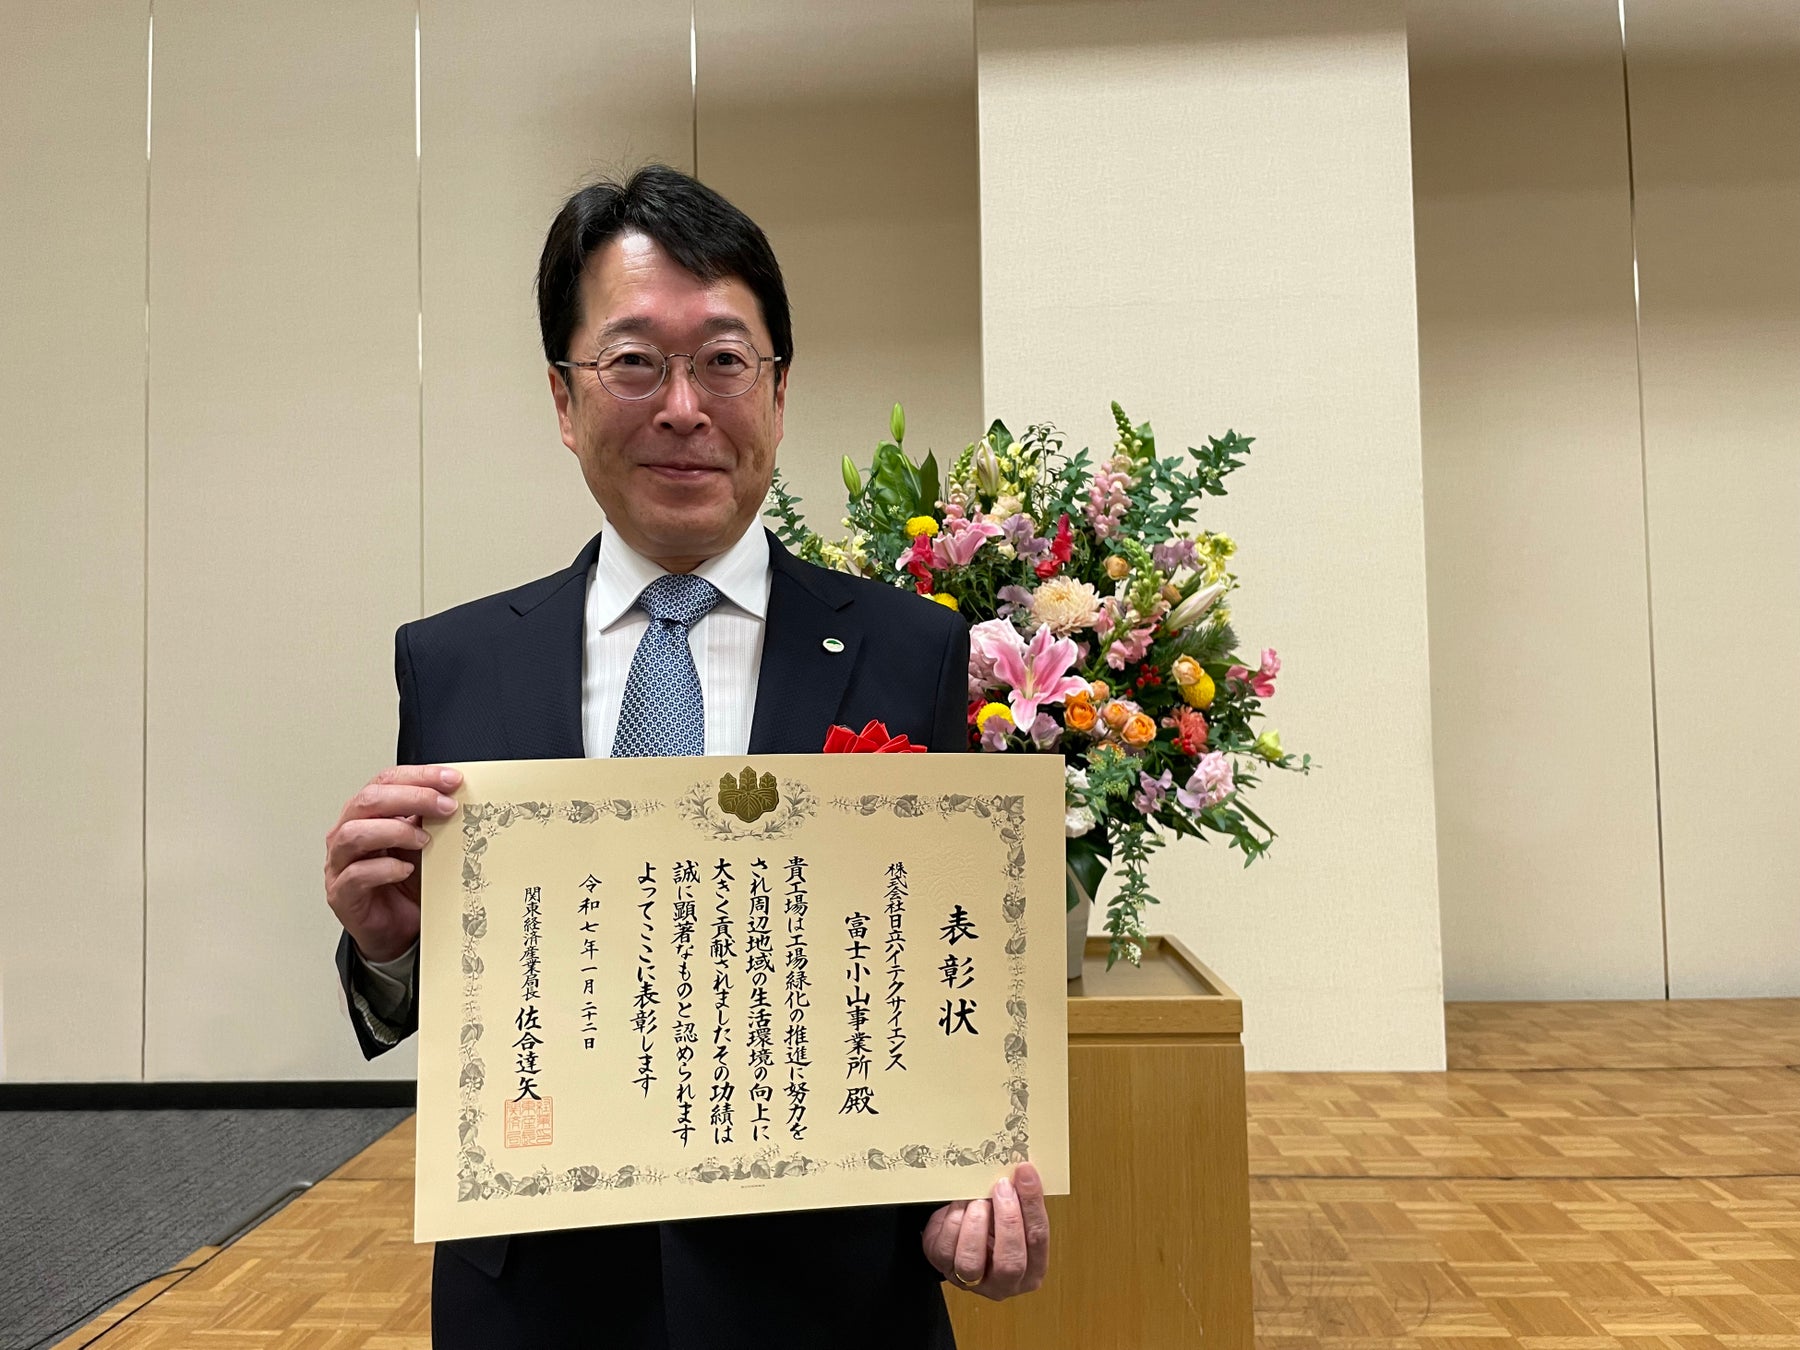 表彰状
株式会社日立ハイテクサイエンス
富士小山事業所 殿
貴工場は工場緑化の推進に努力を
され周辺地域の生活環境の向上に
大きく貢献されましたその功績は
誠に顕著なものと認められます
よってここに表彰します
令和七年一月二十二日
関東経済産業局長 佐合達矢